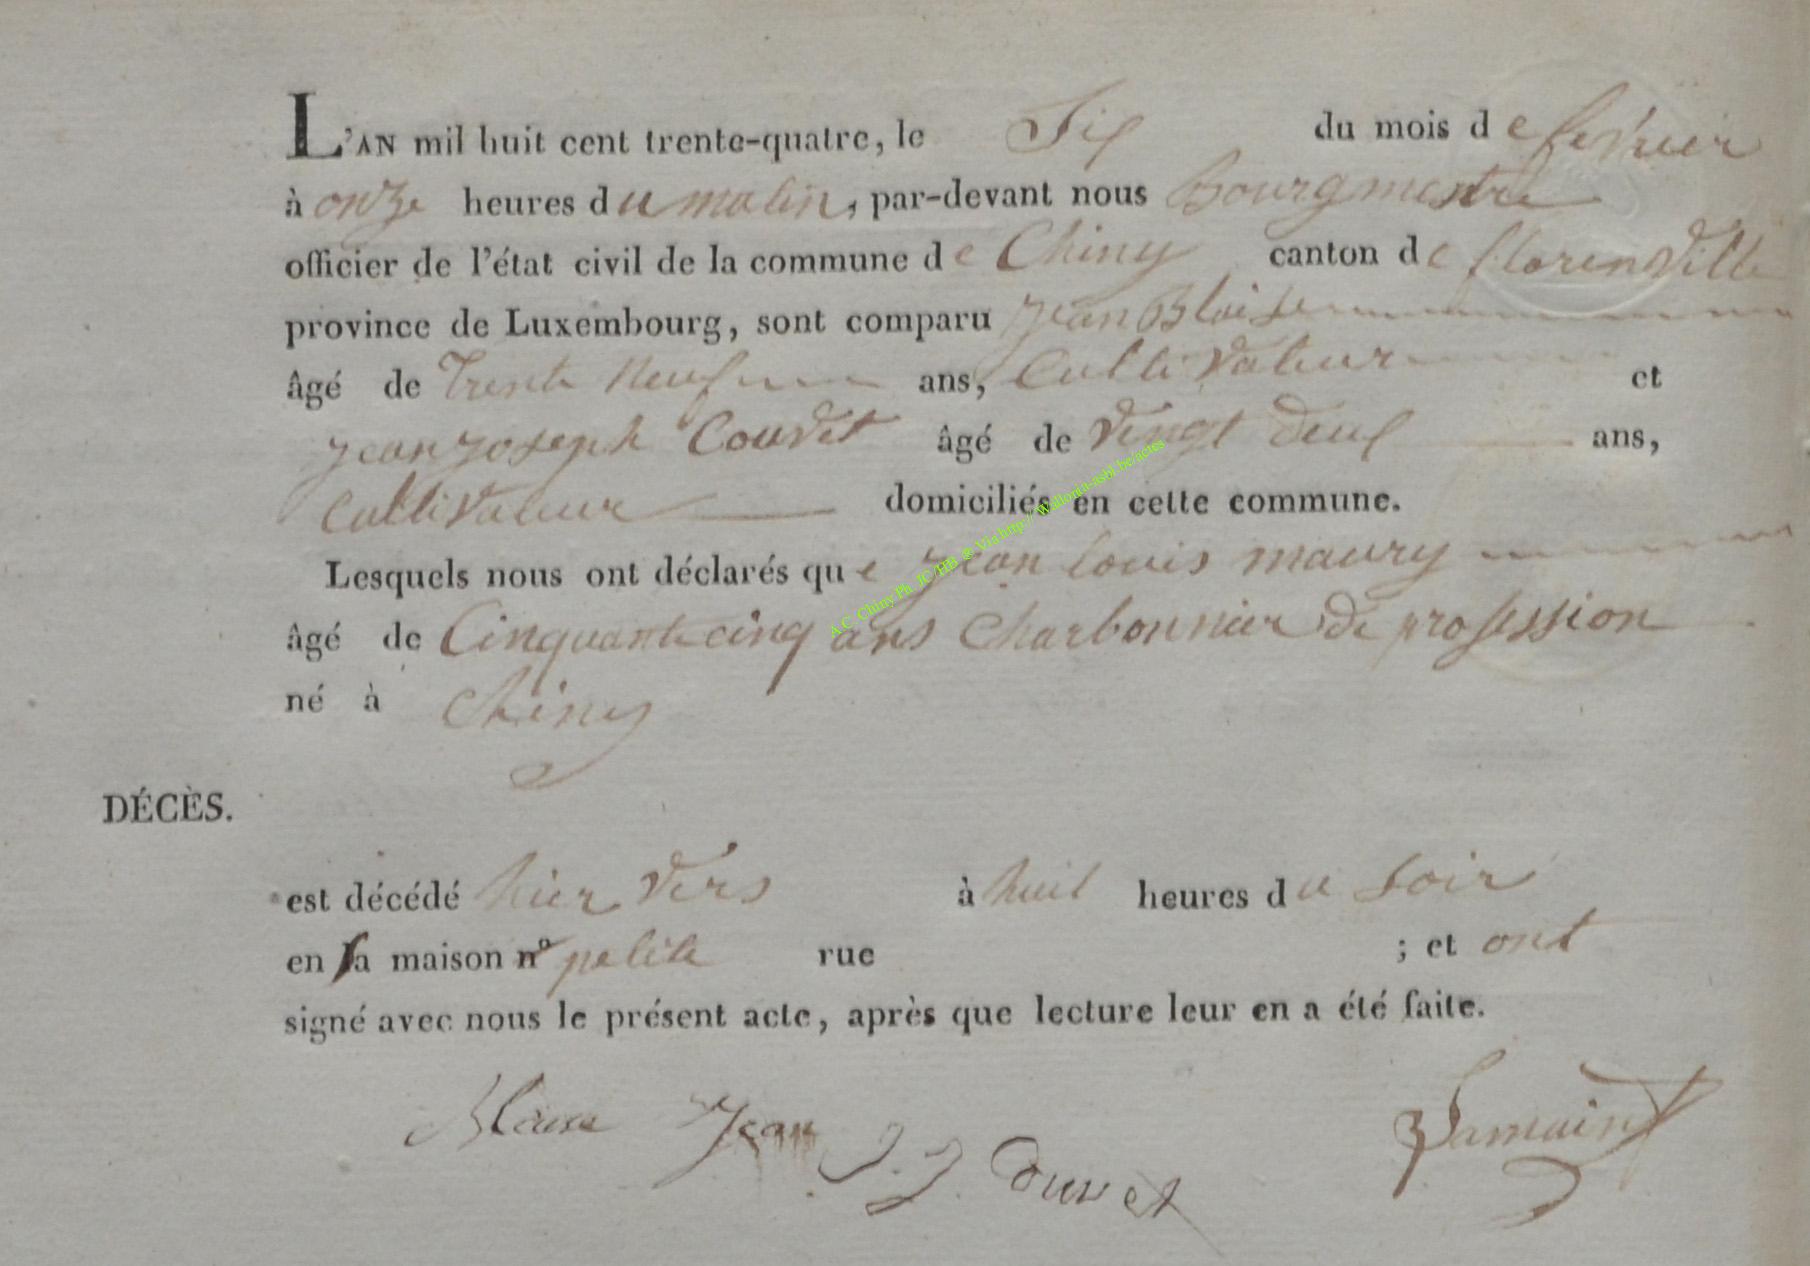 L'AN mil huit cent trente-quatre, le Six du mois de fevrier
à onze heures du matin, par-devant nous Bourgmestre
officier de l'état civil de la commune de Chiny canton de florenville
province de Luxembourg, sont comparu jean Blaise
âgé de Trente Neuf ans, Cultivateur et
jean joseph âgé de vingt deux ans,
Cultivateur domiciliés en cette commune.
Lesquels nous ont déclarés que jean louis maury
âgé de Cinquante cinq ans charbonnier de profession
né à Chiny
DÉCÈS.
est décédé hier vers à huit heures du soir
en sa maison nº petite rue ; et ont
signé avec nous le présent acte, après que lecture leur en a été faite.
Jean J. J. Duvet
A C Chiny Ph JC/HB @ Via http:// Wallonia-asbl.be/actes